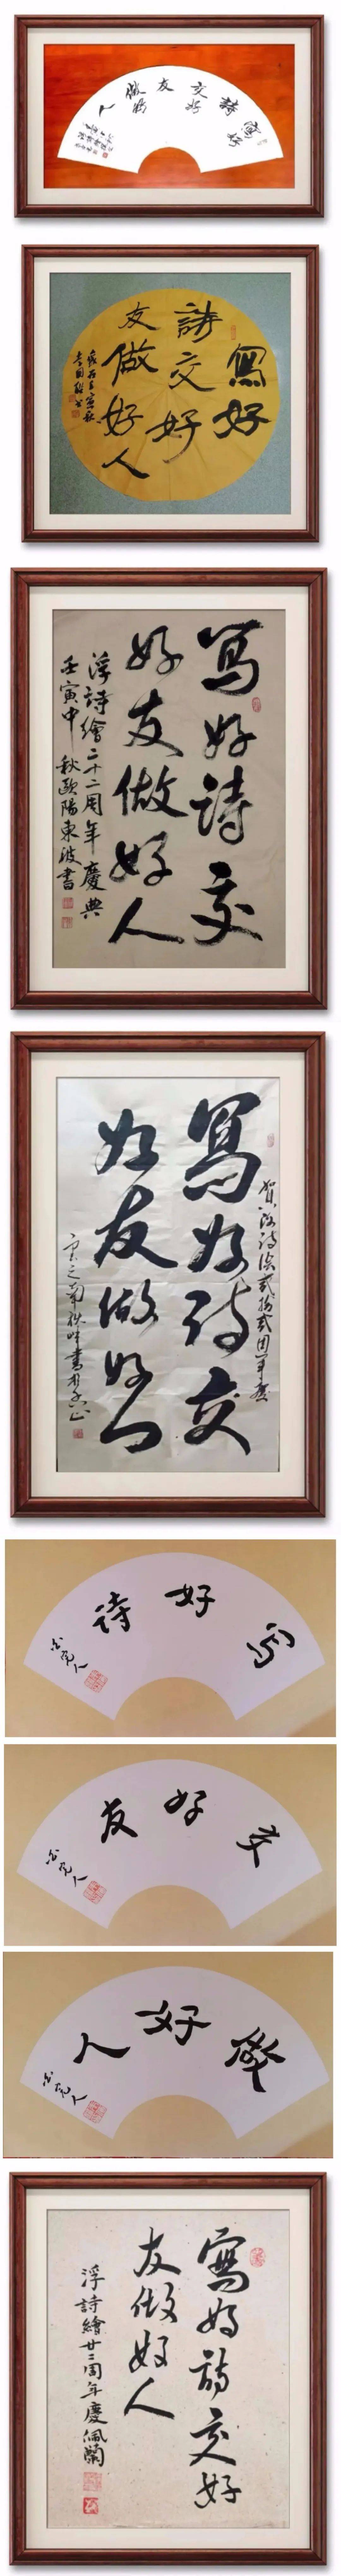 寫好
詩
交好
友
做好
人
寫好
詩交好
友做好人
歲在壬寅秋
寫好詩交
好友做好人
浮詩繪二十二周年慶典
壬寅中秋歐陽東波書
賀浮詩繪貳拾貳周年慶
寫好詩交
好友做好人
写好诗
交好友
做好人
寫好詩交好
友做好人
浮詩繪廿二周年慶佩蘭